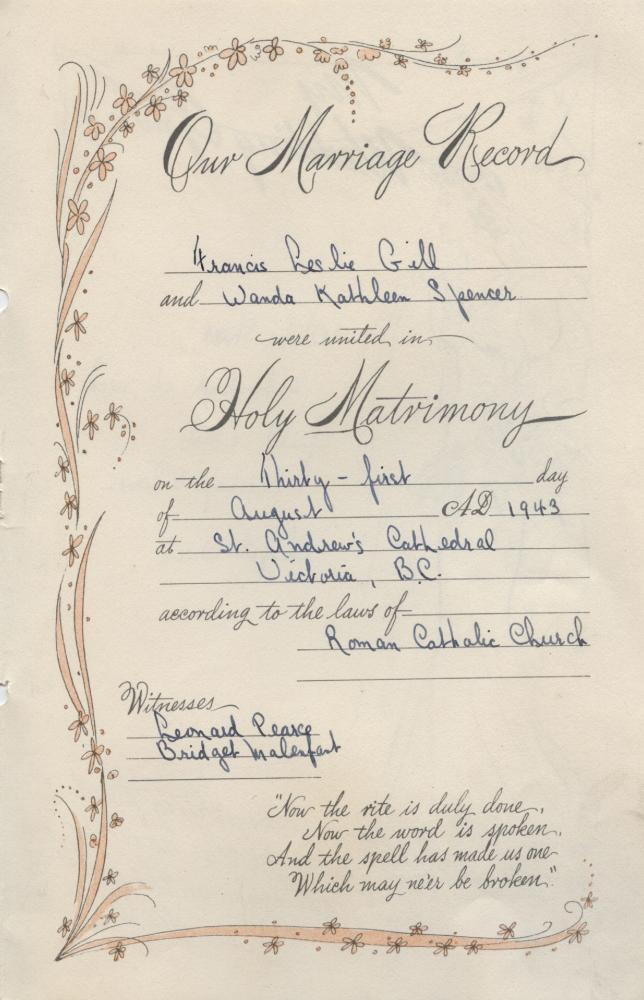 Our Marriage Record
Francis Leslie Gill
and Wanda Kathleen Spencer
were united in
Holy Matrimony
on the Thirty - first day
of August AD 1943
at St. Andrew's Cathedral
Victoria, B.C.
according to the laws of
Roman Catholic Church
Witnesses
Leonard Pearce
Bridget Malenfant
"Now the rite is duly done,
Now the word is spoken,
And the spell has made us one
Which may ne'er be broken."